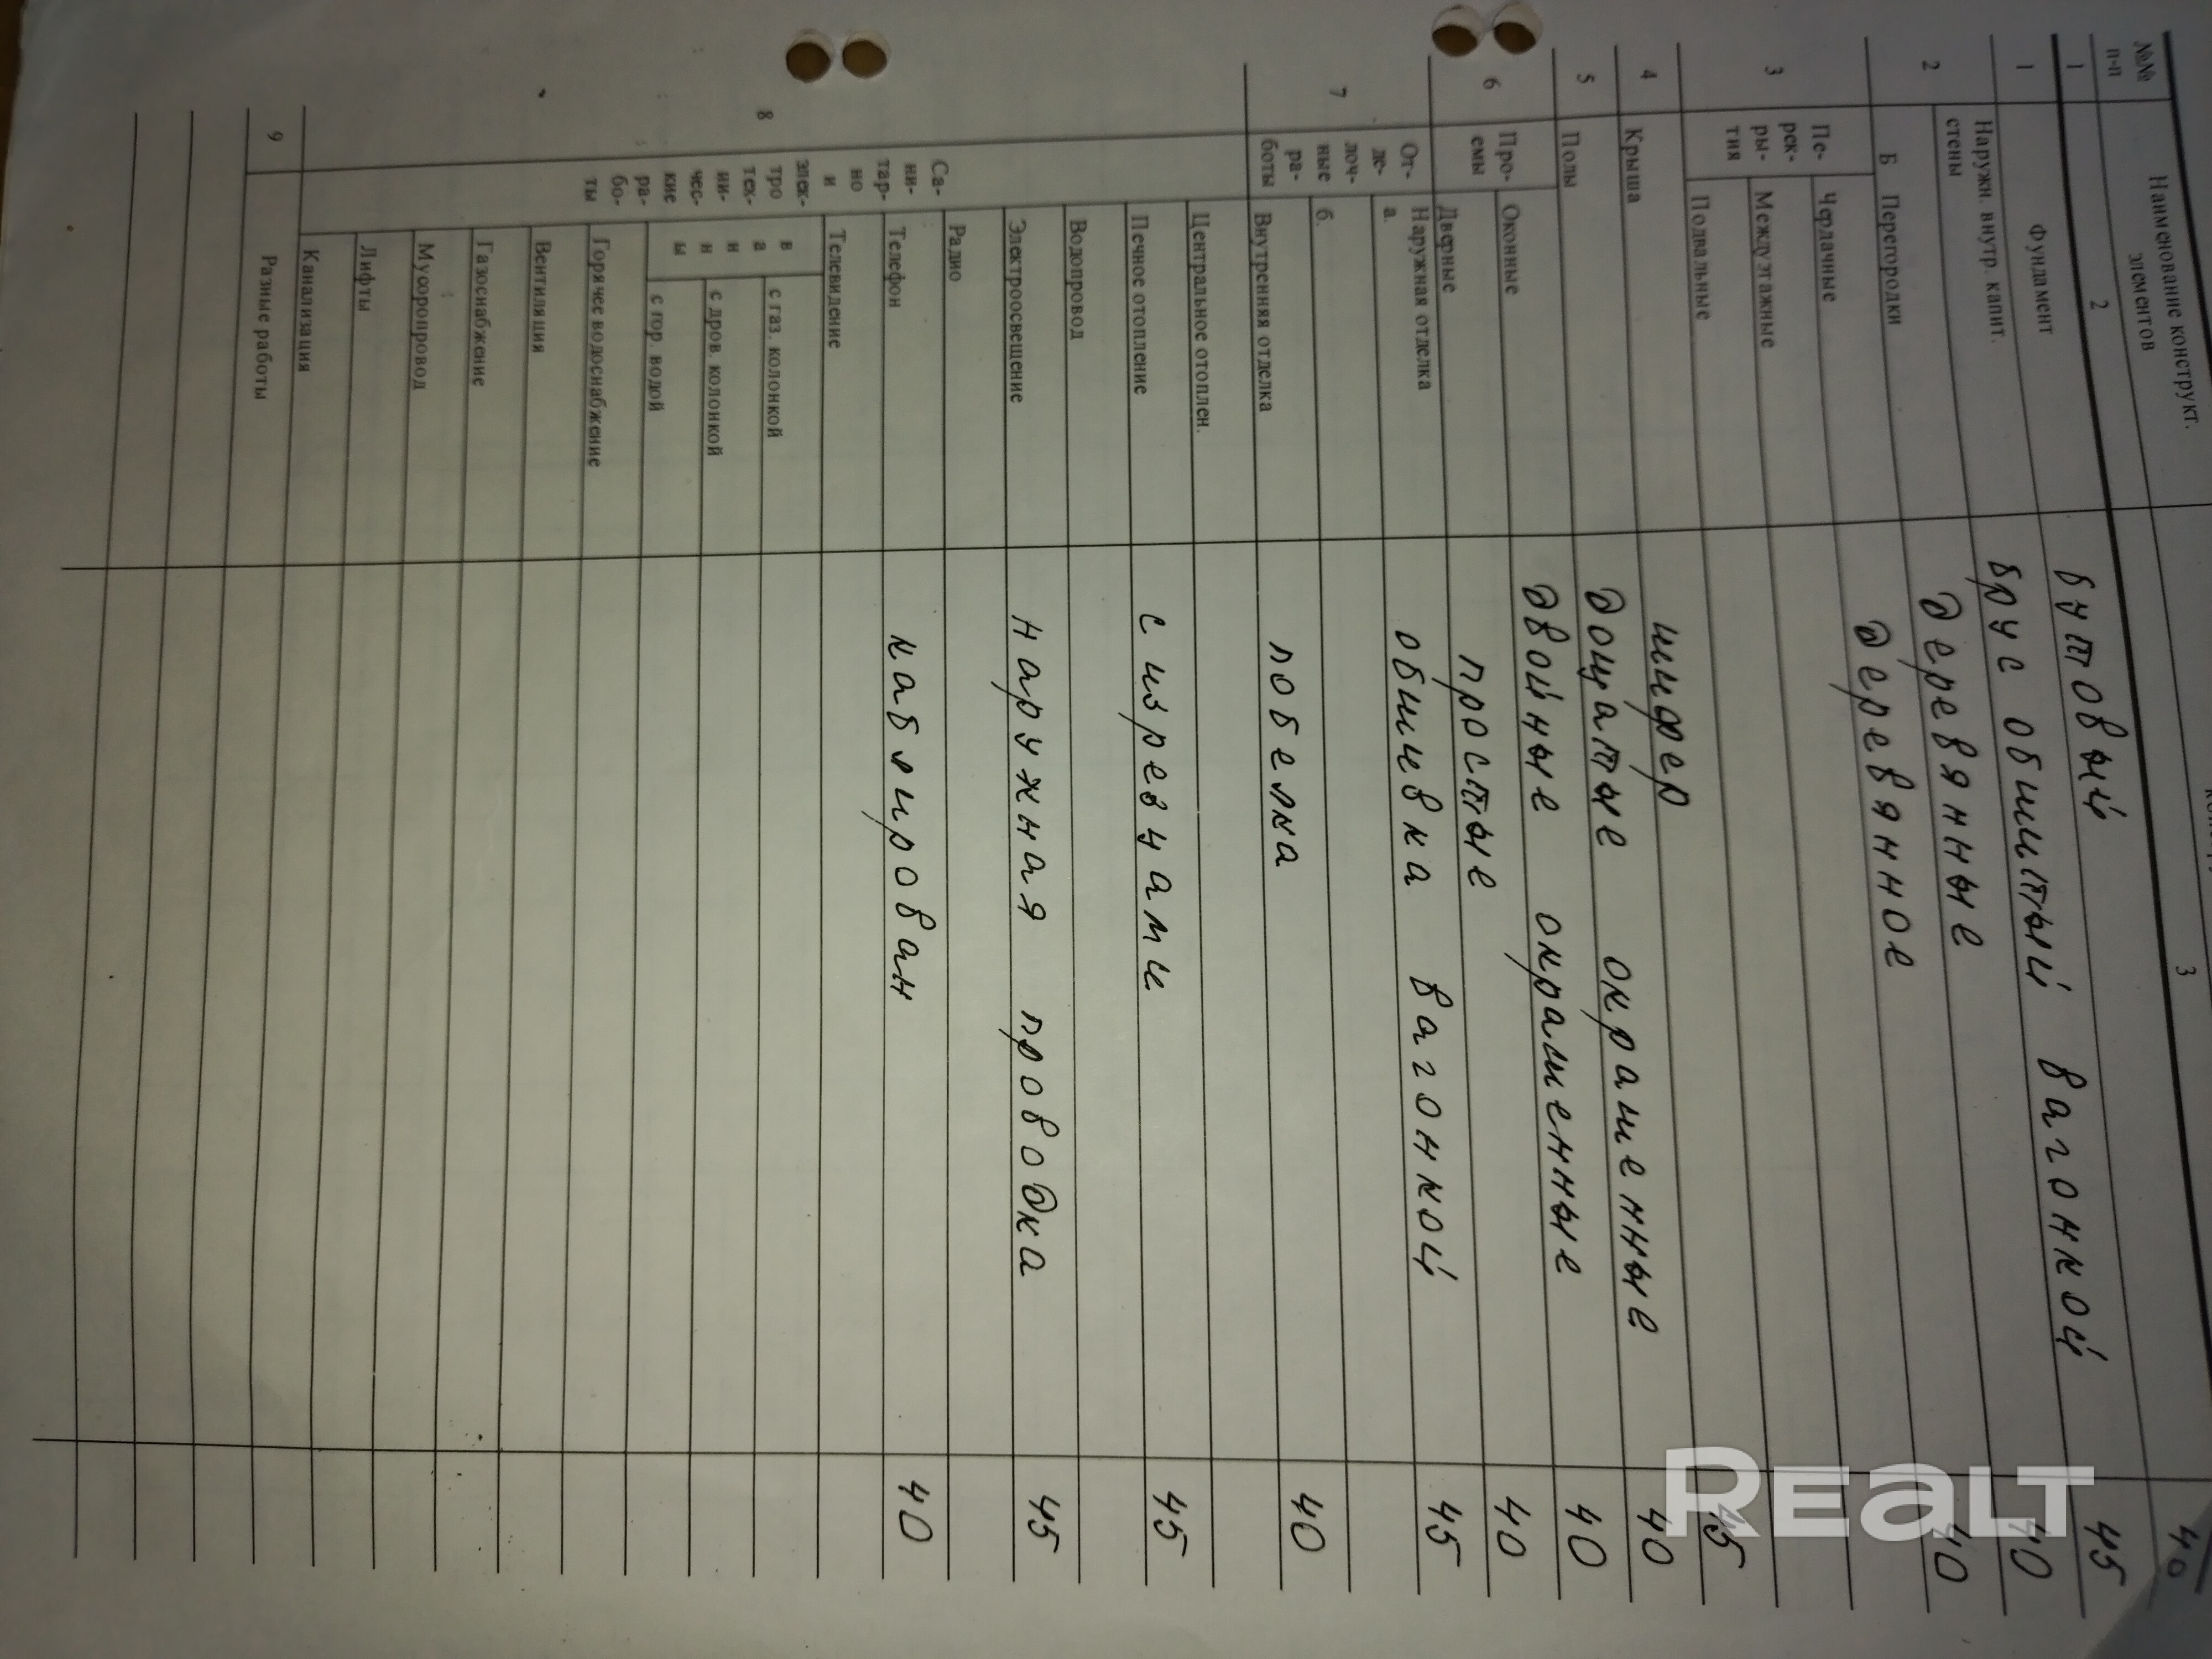 №№ п-п Наименование конструкт. элементов
1 2 3
1 Фундамент бутовый 45
2 Наружн. внутр. капит. стены брус обшитый вагонкой 40
Б Перегородки деревянные 40
3 Пе-рек-ры-тия Чердачные деревянное
Междуэтажные
Подвальные
4 Крыша шифер 45
5 Полы дощатые окрашенные 40
6 Про-емы Оконные двойные окрашенные 40
Дверные простые 40
7 От-де-лоч-ные ра-боты Наружная отделка а. обшивка вагонкой 45
б.
Внутренняя отделка побелка 40
8 Са-ни-тар-но и элек-тро тех-ни-чес-кие ра-бо-ты Центральное отоплен.
Печное отопление с изрезцами 45
Водопровод
Электроосвещение наружная проводка 45
Радио
Телефон каблирован 40
Телевидение
в а н н ы с газ. колонкой
с дров. колонкой
с гор. водой
Горячее водоснабжение
Вентиляция
Газоснабжение
Мусоропровод
Лифты
Канализация
9 Разные работы
REALT